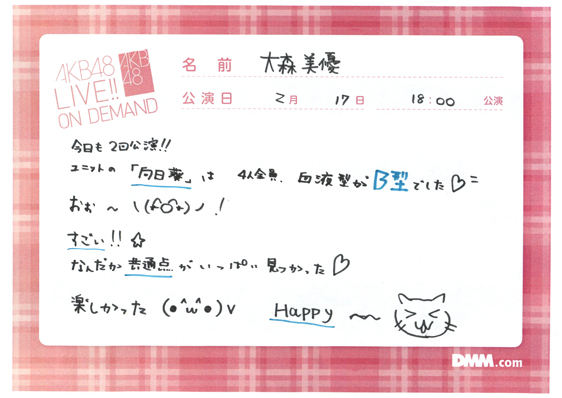 AKB48
LIVE!!
ON DEMAND
AKB
48
名前 大森美優
公演日 2月 17日 18:00 公演
今日も2回公演!!
ユニットの「向日葵」は 4人全員、血液型がB型でした♡=
おぉ〜 \(^o^)ノ !
すごい!!☆
なんだか共通点がいっぱい見つかった♡
楽しかった (●^ω^●)v Happy 〜〜
DMM.com